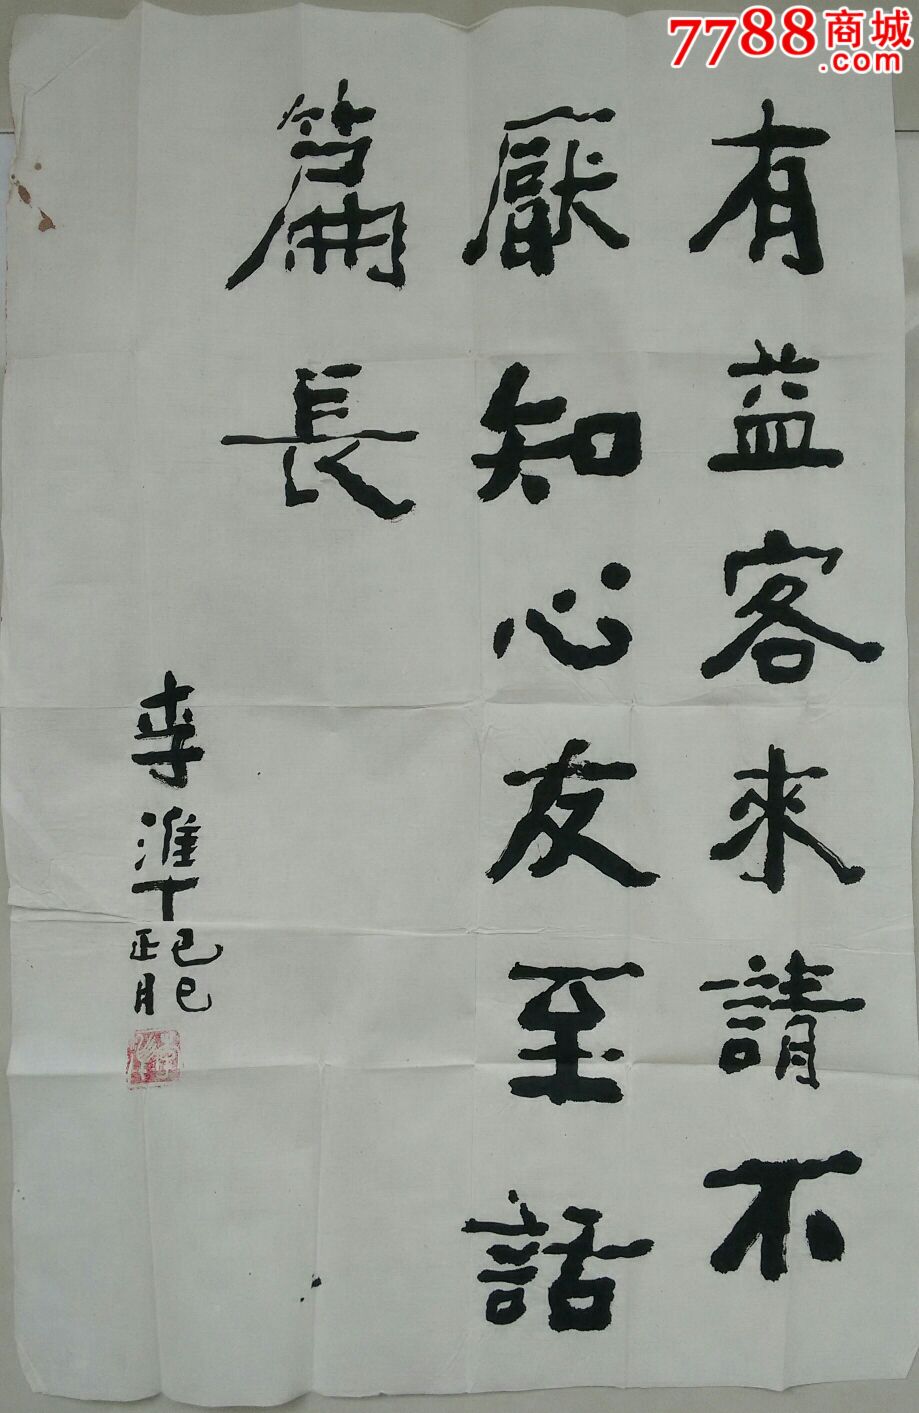 7788商城
.com
有益客來請不
厭知心友至話
篇長
李準
己巳
正月